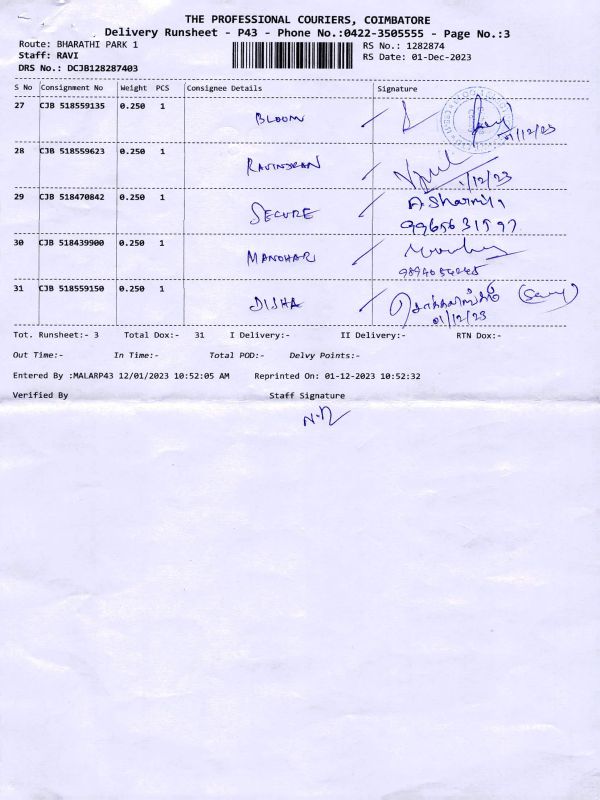 THE PROFESSIONAL COURIERS, COIMBATORE
Delivery Runsheet - P43 - Phone No.:0422-3505555 - Page No.:3
Route: BHARATHI PARK 1
RS No.: 1282874
Staff: RAVI
RS Date: 01-Dec-2023
DRS No.: DCJB128287403
S No Consignment No Weight PCS Consignee Details Signature
27 CJB 518559135 0.250 1 BLOOM
01/12/23
28 CJB 518559623 0.250 1 RAVINDRAN
1/12/23
29 CJB 518470842 0.250 1 SECURE A Sharmila
9965631597
30 CJB 518439900 0.250 1 MANOHAR
9894054245
31 CJB 518559150 0.250 1 DISHA
01/12/23
Tot. Runsheet:- 3 Total Dox:- 31 I Delivery:- II Delivery:- RTN Dox:-
Out Time:- In Time:- Total POD:- Delvy Points:-
Entered By :MALARP43 12/01/2023 10:52:05 AM Reprinted On: 01-12-2023 10:52:32
Verified By Staff Signature